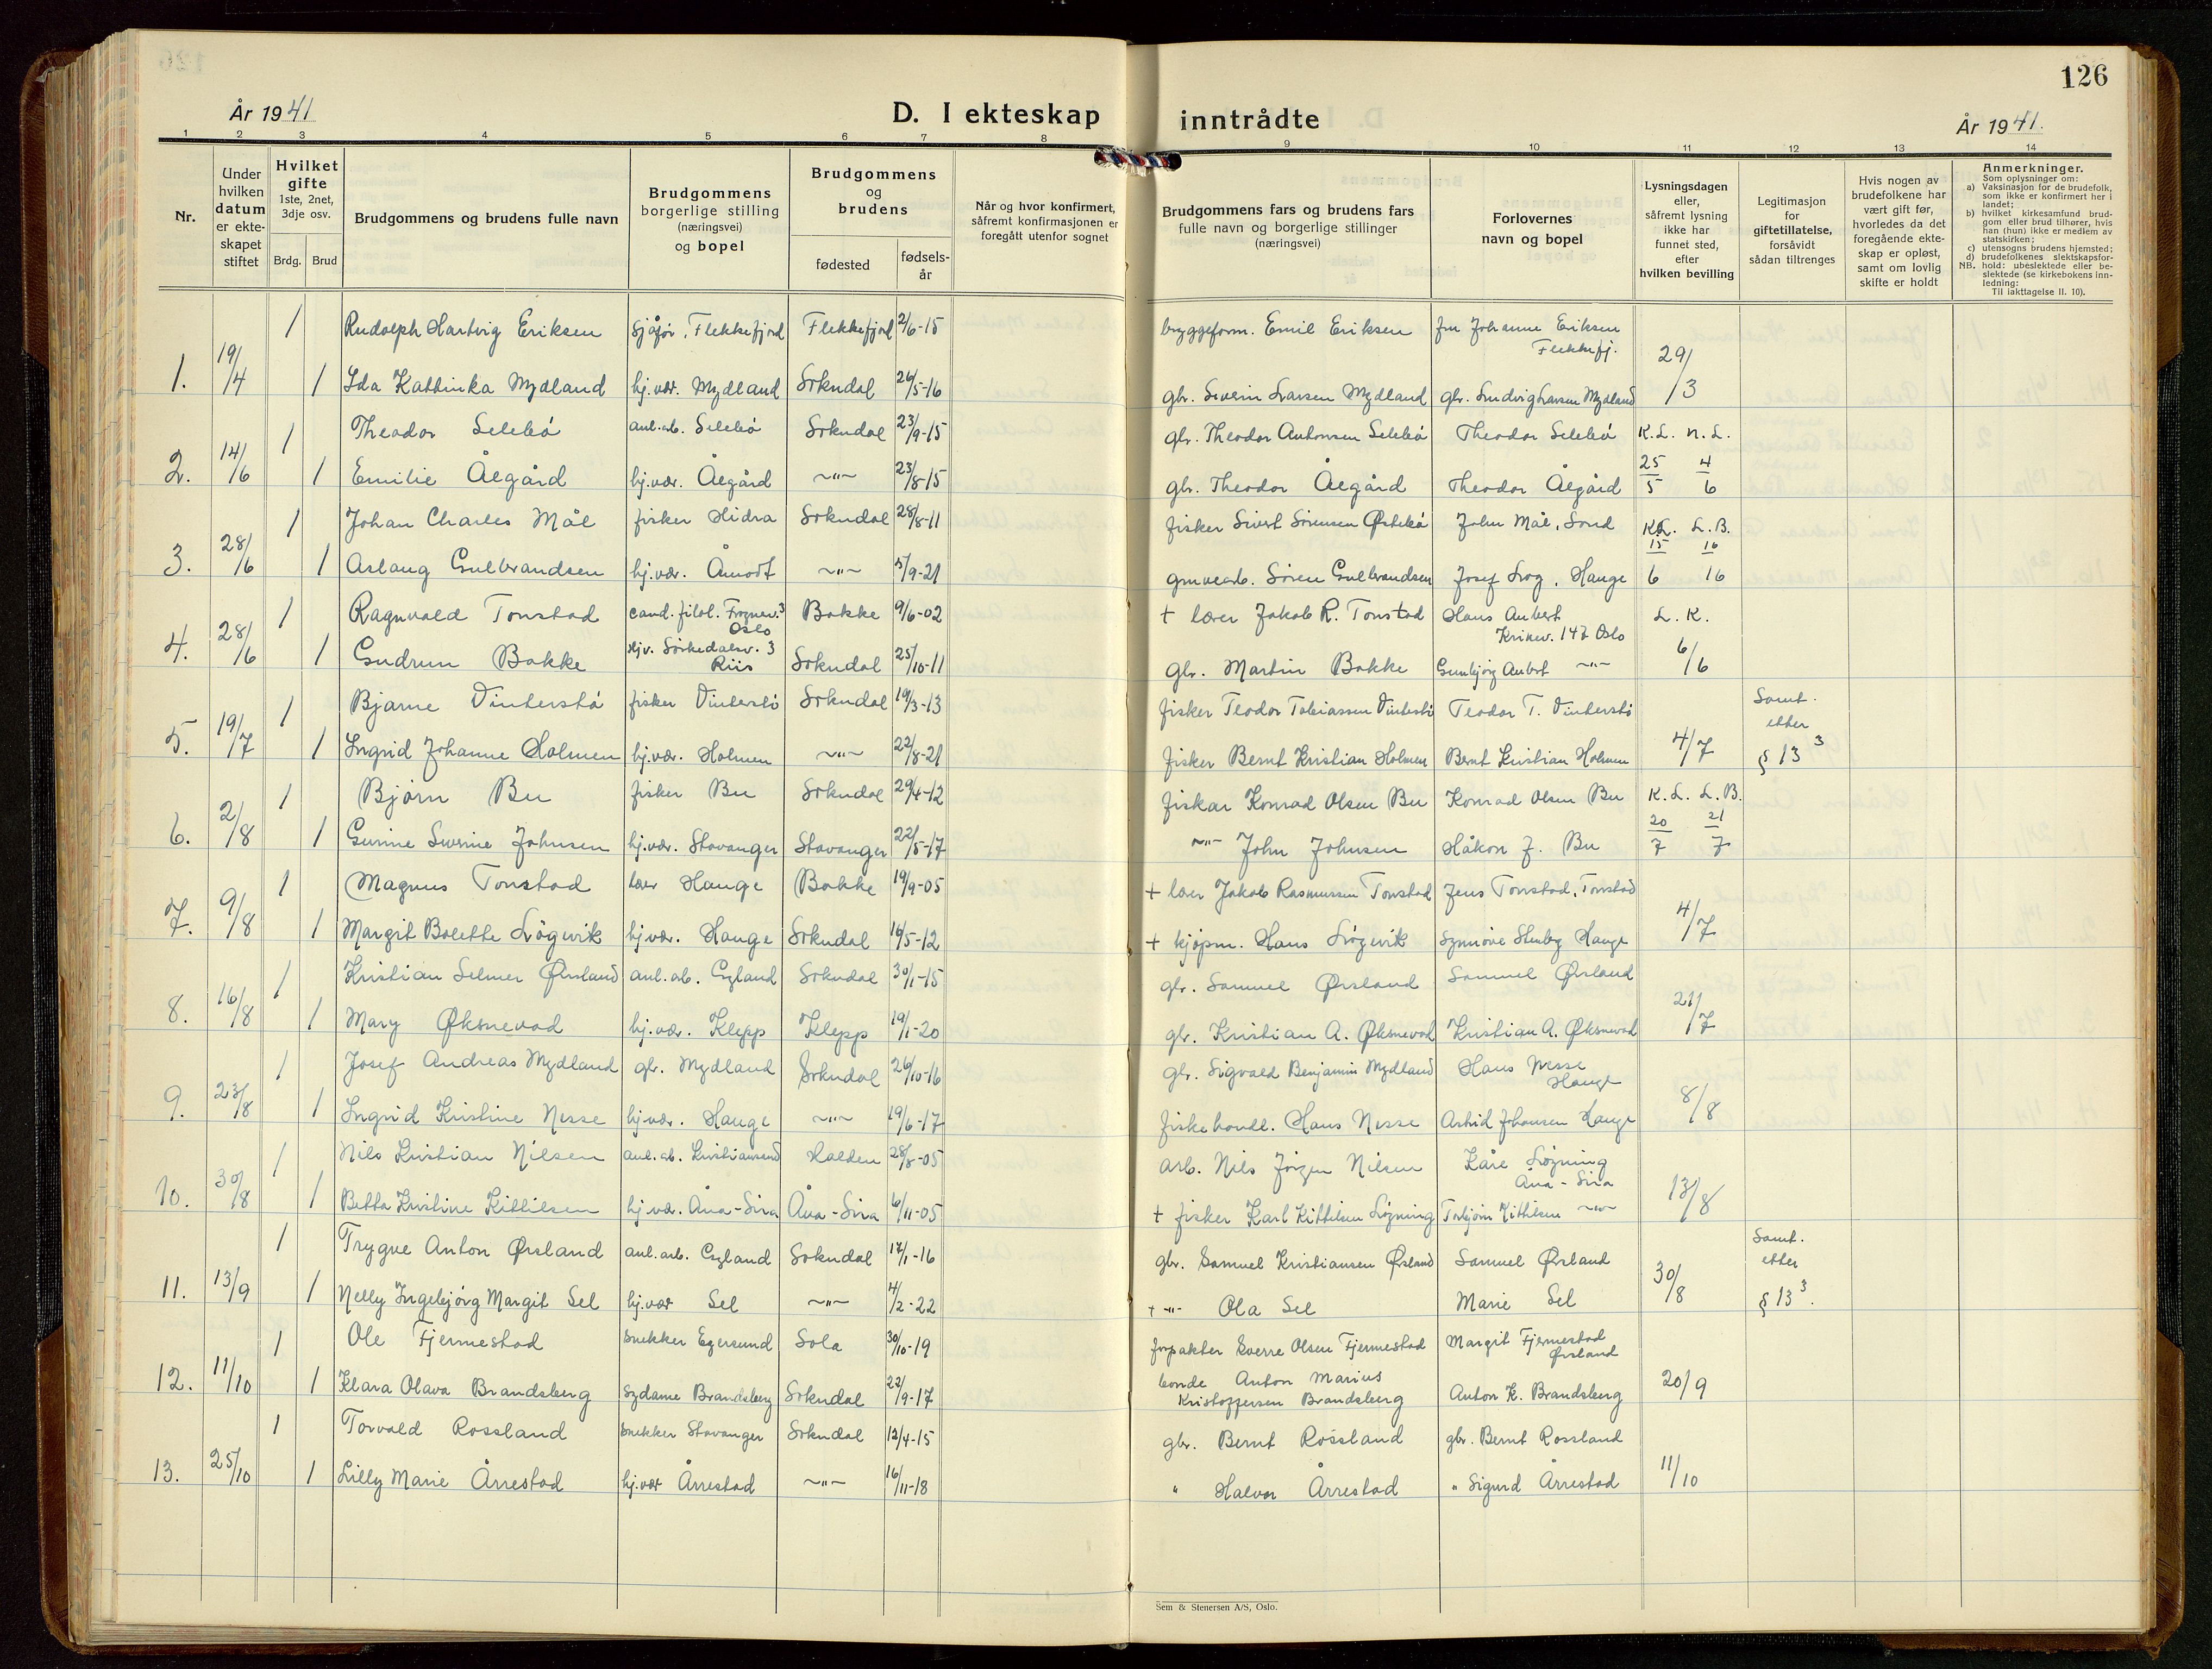 126
År 1941
D. I ekteskap inntrådte
År 1941.
1 2 3 4 5 6 7 8 9 10 11 12 13 14
Nr.
Under hvilken datum er ekteskapet stiftet
Hvilket gifte 1ste, 2net, 3dje osv.
Brdg. Brud
Brudgommens og brudens fulle navn
Brudgommens borgerlige stilling (næringsvei) og bopel
Brudgommens og brudens
fødested
fødselsår
Når og hvor konfirmert, såfremt konfirmasjonen er foregått utenfor sognet
Brudgommens fars og brudens fars fulle navn og borgerlige stillinger (næringsvei)
Forlovernes navn og bopel
Lysningsdagen eller, såfremt lysning ikke har funnet sted, efter hvilken bevilling
Legitimasjon for giftetillatelse, forsåvidt sådan tiltrenges
Hvis nogen av brudefolkene har vært gift før, hvorledes da det foregående ekteskap er opløst, samt om lovlig skifte er holdt
Anmerkninger.
Som oplysninger om:
a) Vaksinasjon for de brudefolk, som ikke er konfirmert her i landet;
b) hvilket kirkesamfund brudgom eller brud tilhører, hvis han (hun) ikke er medlem av statskirken;
c) utensogns brudens hjemsted;
d) brudefolkenes slektskapsforhold: ubeslektede eller beslektede (se kirkebokens innledning:
NB. Til iakttagelse II. 10).
1 Rudolph Hartvig Eriksen sjåfør, Flekkefjord Flekkefjord 2/6-15 bryggeform. Emil Eriksen fru Johanne Eriksen Flekkefj.
1. 19/4 1 Ida Kathinka Mydland hj.vær. Mydland Sokndal 26/5-16 gbr. Severin Larsen Mydland gbr. Ludvig Larsen Mydland 29/3
1 Theodor Selebø anl.arb. Selebø Sokndal 23/9-15 gbr. Theodor Antonsen Selebø Theodor Selebø K.L. N.L.
2. 14/6 1 Emilie Ålgård hj.vær. Ålgård -"- 23/8-15 gbr. Theodor Ålgård Theodor Ålgård 25/5 4/6
1 Johan Charles Mål fisker Hidra Sokndal 28/8-11 fisker Sivert Sørensen Østebø John Mål, Sond K.L. L.B.
3. 28/6 1 Aslaug Gulbrandsen hj.vær. Åmodt -"- 5/9-21 gruvearb. Sören Gulbrandsen Josef Log, Hauge 15/6 16/16
1 Ragnvald Tonstad cand. filol. Frognerv. 3 Oslo Bakke 9/6-02 + lærer Jakob R. Tonstad Hans Aubert Kirkev. 147 Oslo L.K.
4. 28/6 1 Gudrun Bakke Hjv. Sørkedalsv. 3 Riis Sokndal 25/10-11 gbr. Martin Bakke Gunbjørg Aubert -"- 6/6
1 Bjarne Vinterstø fisker Vinterstø Sokndal 19/3-13 fisker Teodor Tobiassen Vinterstø Teodor T. Vinterstø Samt. etter
5. 19/7 1 Ingrid Johanne Holmen hj.vær. Holmen -"- 22/8-21 fisker Bernt Kristian Holmen Bernt Kristian Holmen 4/7 § 13 3
1 Bjørn Bu fisker Bu Sokndal 29/4-12 fisker Konrad Olsen Bu Konrad Olsen Bu K.L. L.B.
6. 2/8 1 Gurine Severine Johnsen hj.vær. Stavanger Stavanger 22/5-17 -"- John Johnsen Håkon J. Bu 20/7 21/7
1 Magnus Tonstad lærer Hauge Bakke 19/9-05 + lærer Jakob Rasmussen Tonstad Jens Tonstad, Tonstad
7. 9/8 1 Margit Bolette Løgevik hj.vær. Hauge Sokndal 16/5-12 + kjøpm. Hans Løgevik Synnøve Stenberg Hauge 4/7
1 Kristian Selmer Ørsland anl.arb. Eegland Sokndal 30/1-15 gbr. Samuel Ørsland Samuel Ørsland
8. 16/8 1 Mary Øksnevad hj.vær. Klepp Klepp 19/1-20 gbr. Kristian A. Øksnevad Kristian A. Øksnevad 21/7
1 Josef Andreas Mydland gbr. Mydland Sokndal 26/10-16 gbr. Sigvald Benjamin Mydland Hans Nesse Hauge
9. 23/8 1 Ingrid Kristine Nesse hj.vær. Hauge -"- 19/6-17 fiskehandl. Hans Nesse Astrid Johansen Hauge 8/8
1 Nils Kristian Nilsen anl.arb. Kristiansand Halden 28/8-05 arb. Nils Jørgen Nilsen Kåre Løgning Åna-Sira
10. 30/8 1 Betta Kristine Kittilsen hj.vær. Åna-Sira Åna-Sira 6/11-05 + fisker Karl Kittilsen Løgning Torbjørn Kittilsen -"- 13/8
1 Trygve Anton Ørsland anl.arb. Eegland Sokndal 17/1-16 gbr. Samuel Kristiansen Ørsland Samuel Ørsland Samt. etter
11. 13/9 1 Nelly Ingebjørg Margit Sel hj.vær Sel -"- 4/2-22 + -"- Ola Sel Marie Sel 30/8 § 13 3.
1 Ole Fjermestad snekker Egersund Sola 30/10-19 forpakter Sverre Olsen Fjermestad Margit Fjermestad Ørsland
12. 11/10 1 Klara Olava Brandsberg sydame Brandsberg Sokndal 22/9-17 bonde Anton Marius Kristoffersen Brandsberg Anton K. Brandsberg 20/9
1 Torvald Rossland snekker Stavanger Sokndal 12/4-15 gbr. Bernt Rossland gbr. Bernt Rossland
13. 25/10 1 Lilly Marie Årrestad hj.vær Årrestad -"- 16/11-18 " Halvor Årrestad " Sigurd Årrestad 11/10
Sem & Stenersen A/S, Oslo.